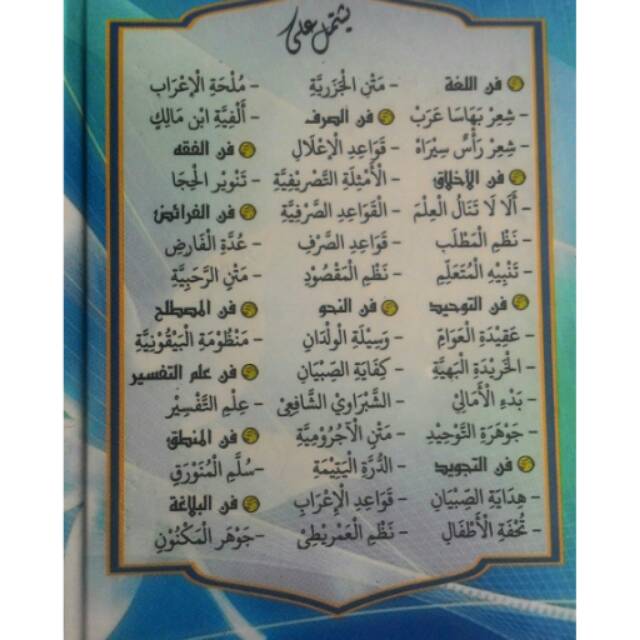 يشتمل على
فن اللغة
- شِعِرْ بَهَاسَا عَرَبْ
- شِعِرْ رَأْسْ سِيْرَاهْ
فن الأخلاق
- أَلَا لَا تَنَالُ الْعِلْمَ
- نَظْمِ الْمَطْلَب
- تَنْبِيْهِ الْمُتَعَلِّمِ
فن التوحيد
- عَقِيْدَةِ الْعَوَامِّ
- الْخَرِيْدَةِ الْبَهِيَّةِ
- بَدْءِ الْأَمَالِيْ
- جَوْهَرَةِ التَّوْحِيْدِ
فن التجويد
- هِدَايَةِ الصِّبْيَانِ
- تُحْفَةِ الْأَطْفَالِ
- مَتْنِ الْجَزَرِيَّةِ
فن الصرف
- قَوَاعِدِ الْإِعْلَالِ
- الْأَمْثِلَةِ التَّصْرِيْفِيَّةِ
- الْقَوَاعِدِ الصَّرْفِيَّةِ
- قَوَاعِدِ الصَّرْفِ
- نَظْمِ الْمَقْصُوْدِ
فن النحو
- وَسِيْلَةِ الْوِلْدَانِ
- كِفَايَةِ الصِّبْيَانِ
- الشَّبْرَاوِيْ الشَّافِعِيْ
- مَتْنِ الْآجُرُوْمِيَّةِ
- الدُّرَّةِ الْيَتِيْمَةِ
- قَوَاعِدِ الْإِعْرَابِ
- نَظْمِ الْعَمْرِيْطِيْ
- مُلْحَةِ الْإِعْرَاب
- أَلْفِيَّةِ ابْنِ مَالِكٍ
فن الفقه
- تَنْوِيْرِ الْحِجَا
فن الفرائض
- عُدَّةِ الْفَارِضِ
- مَتْنِ الرَّحَبِيَّةِ
فن المصطلح
- مَنْظُوْمَةِ الْبَيْقُوْنِيَّةِ
فن علم التفسير
- عِلْمِ التَّفْسِيْرِ
فن المنطق
- سُلَّمِ الْمُنَوْرَقِ
فن البلاغة
- جَوْهَرِ الْمَكْنُوْنِ